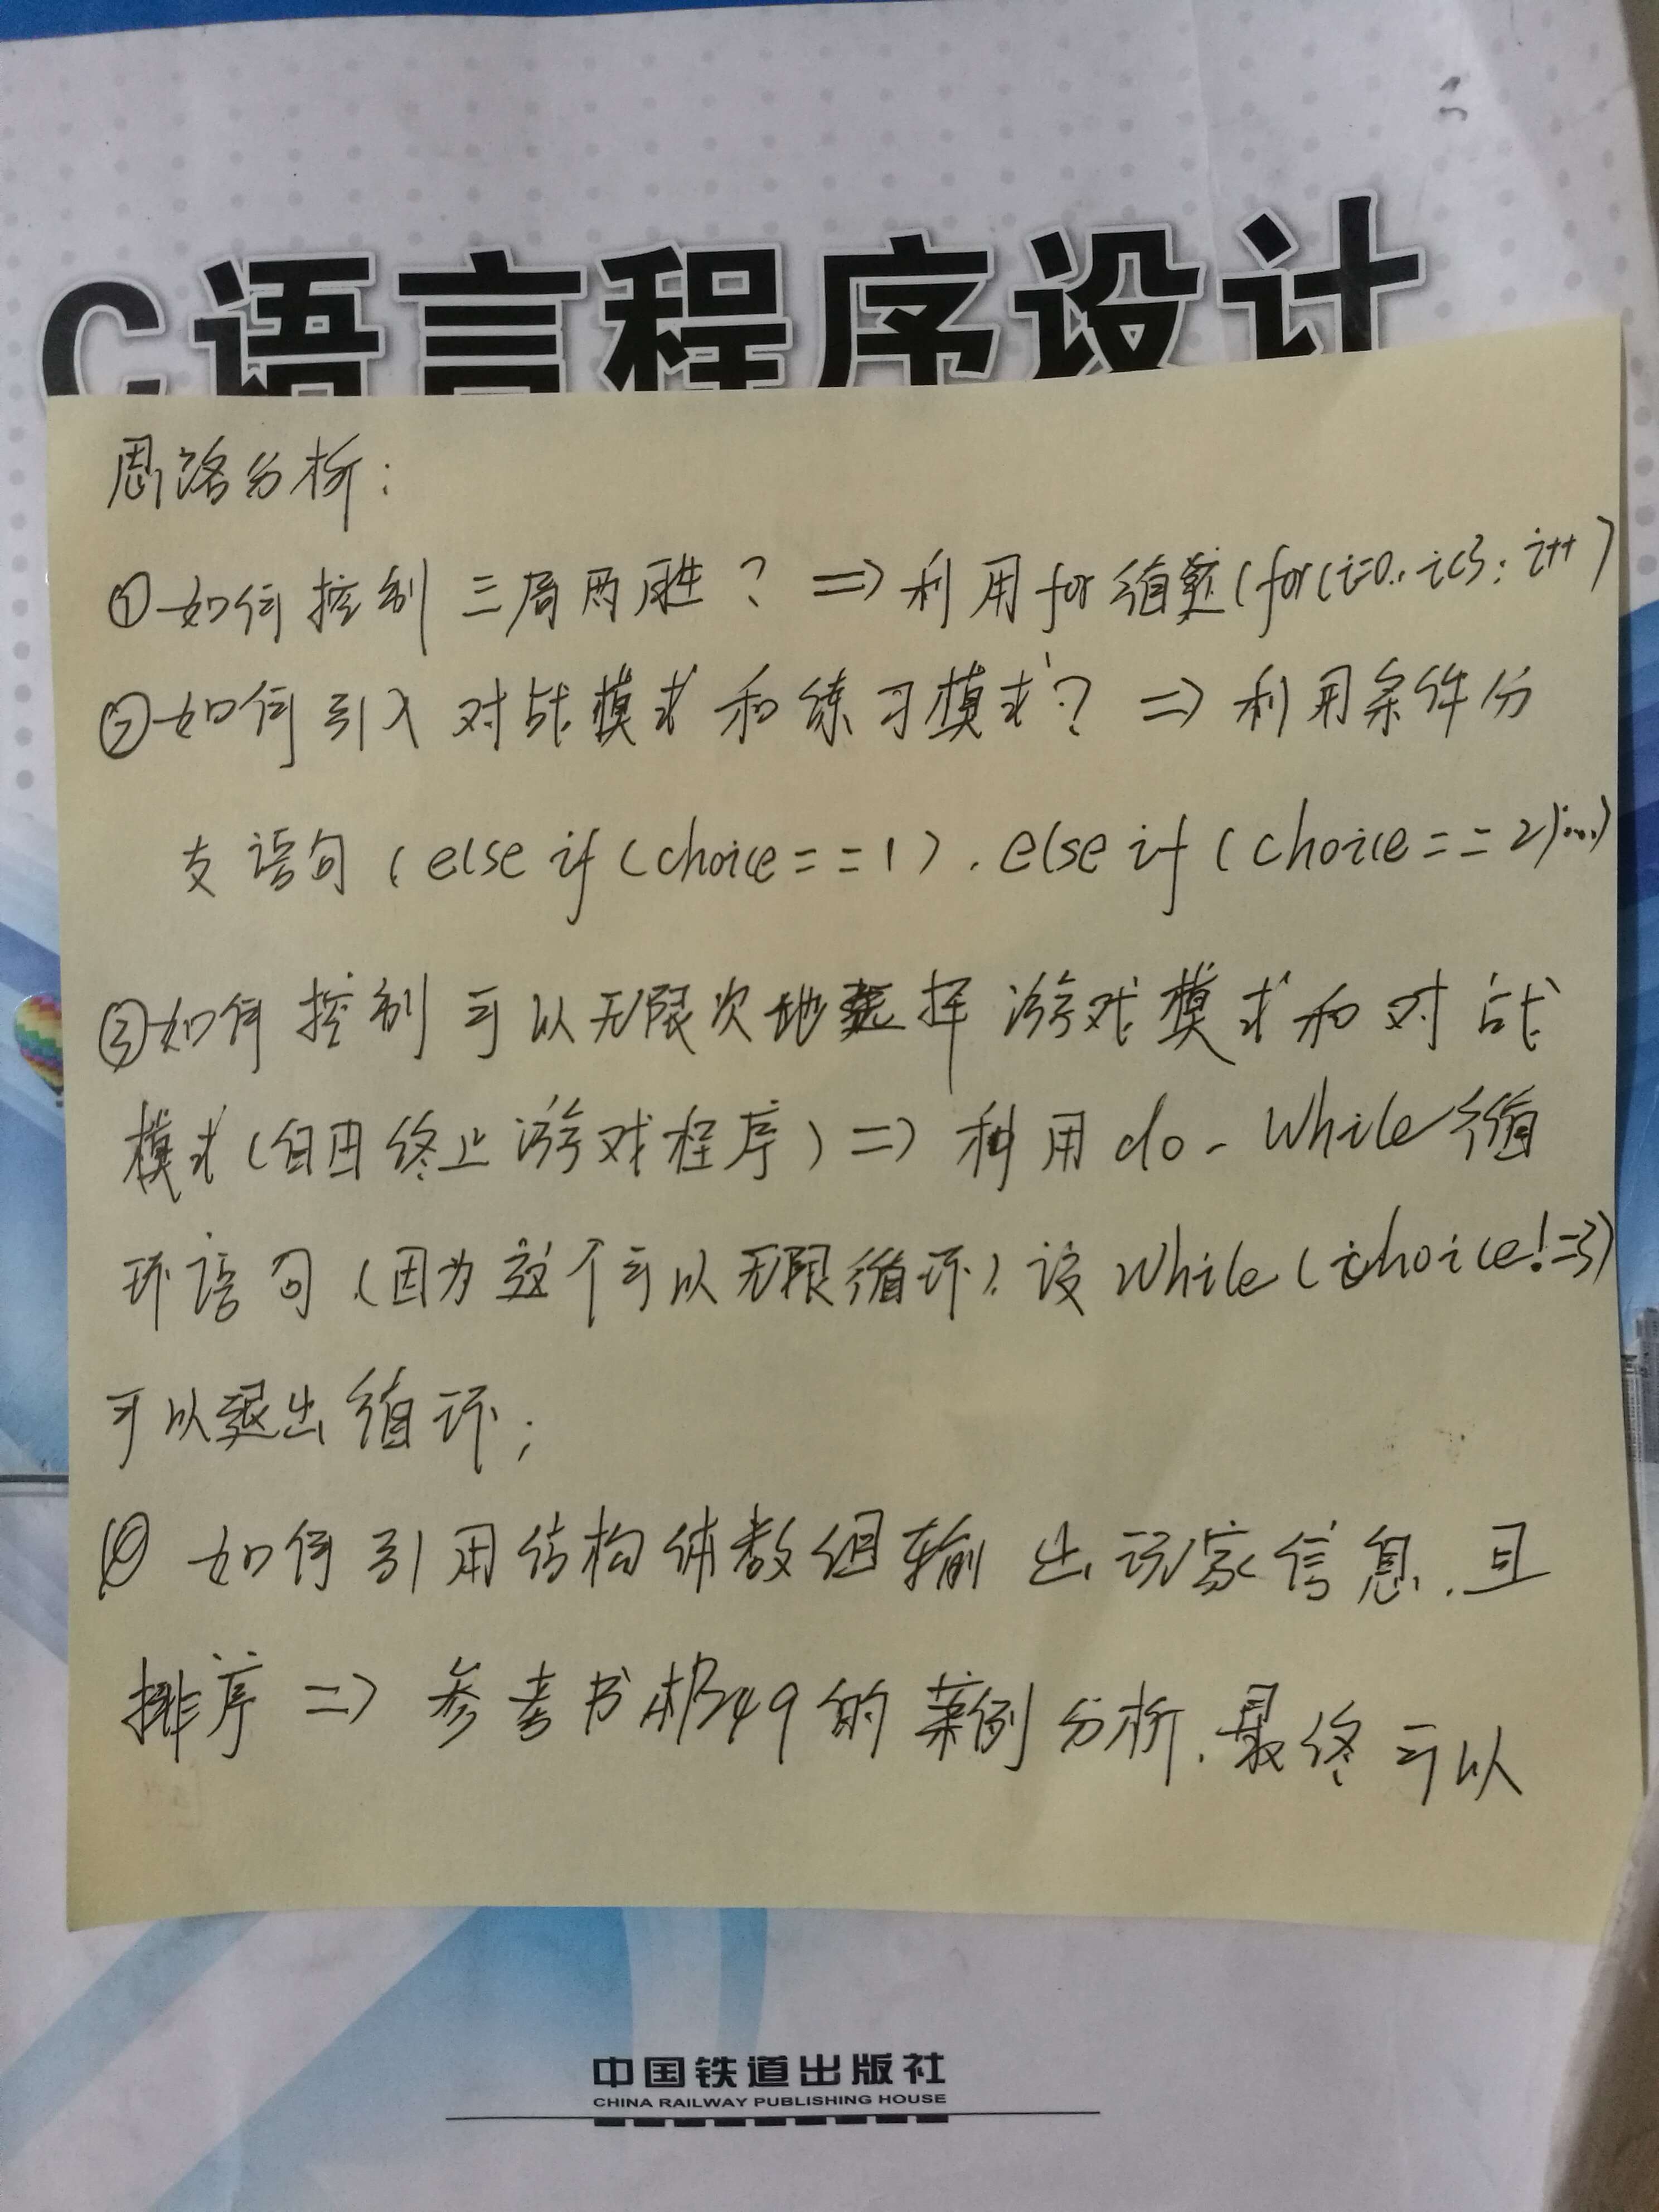 C语言程序设计
思路分析:
①如何控制三局两胜? => 利用for循环(for(i=0;i<3;i++)
②如何引入对战模式和练习模式? => 利用条件分
支语句(else if(choice==1).else if(choice==2)...)
③如何控制可以无限次地选择游戏模式和对战
模式(自由终止游戏程序) => 利用do-While循
环语句(因为这个可以无限循环).设While(choice!=3)
可以退出循环;
④如何引用结构体数组输出玩家信息.且
排序 => 参考书本P249的案例分析.最终可以
中国铁道出版社
CHINA RAILWAY PUBLISHING HOUSE